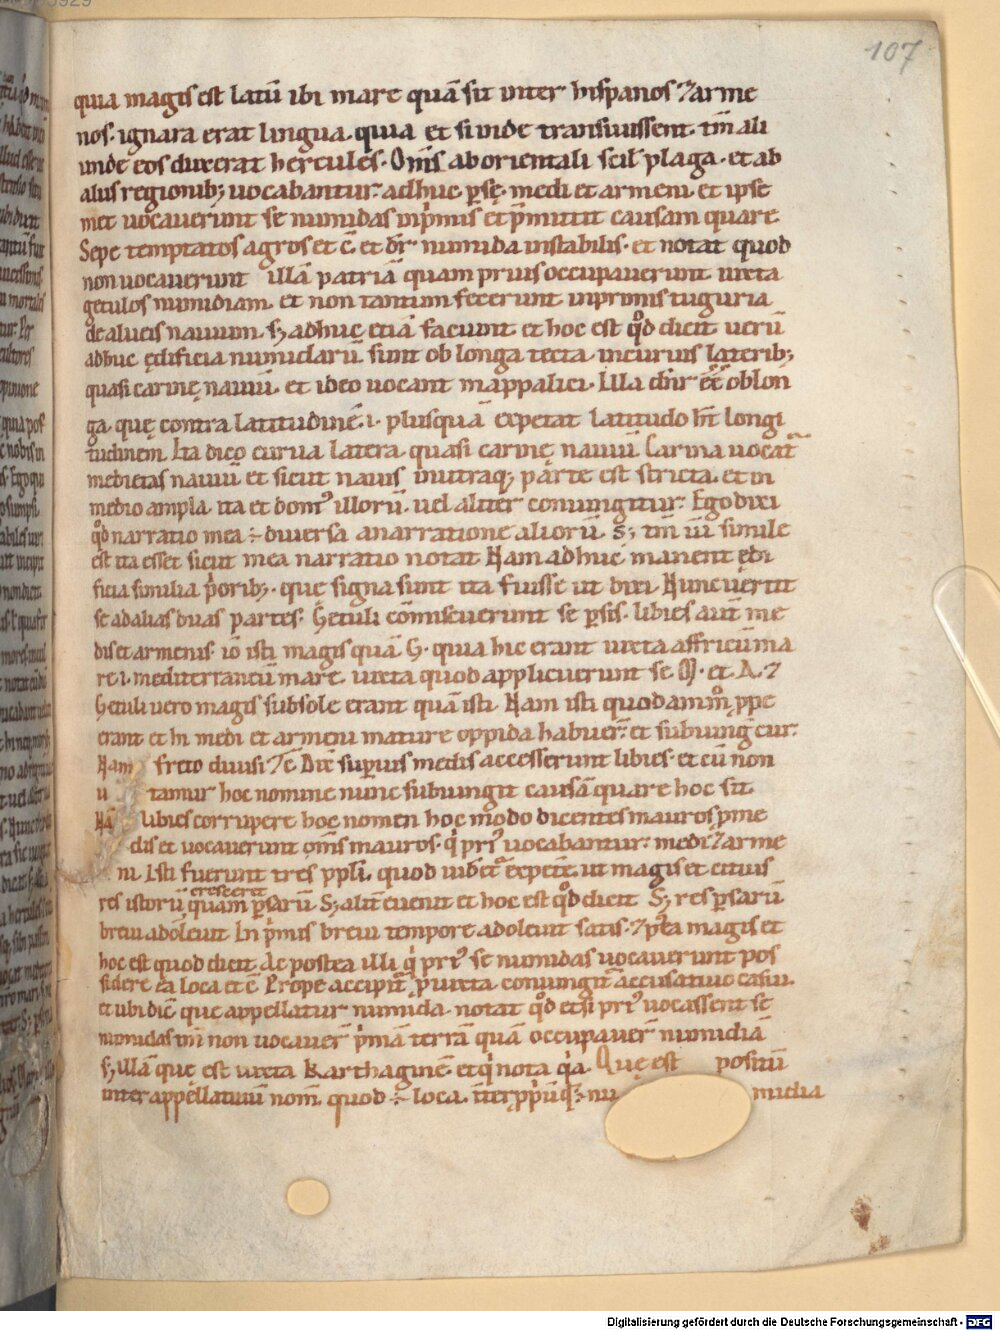 107
quia magis est latū ibi mare quā sit inter hispanos ⁊ arme
nos. ignara erat lingua. quia et si inde transiuissent. tm̄ ali
unde eos duxerat hercules. Om̄s ab orientali scil' plaga. et ab
aliis regionib; uocabantur. adhuc psę. medi et armeni. et ipse
met uocauerunt se numidas inp̄mis et p̄mittit causam quare.
Sepe temptatos agros et c̄. et dr̄ numida instabilis. et notat quod
non uocauerunt illā patriā quam prius occupauerunt iuxta
getulos numidiam. et non tantum fecerunt inprimis tuguria
de alueis nauium. s; adhuc etiā faciunt et hoc est qd̄ dicit uerū
adhuc ędificia numidarū sunt ob longa tecta incuruis laterib;
quasi carinę nauiū. et ideo uocant mappalici. Illa dn̄r ēē oblon
ga. quę contra latitudinē .i. plusquā expetat latitudo hn̄t longi
tudinem. Ita dico curua latera. quasi carinę nauiū. Carina uocat̄
medietas nauiū et sicut nauis inutraq; parte est stricta. et in
medio ampla. ita et dom' illorū. uel aliter coniungitur. Ego dixi
qd̄ narratio mea ÷ diuersa a narratione aliorū. s; tm̄ simile
est ita esset sicut mea narratio notat. Nam adhuc manent ędi
ficia similia p̄orib;. que signa sunt ita fuisse ut dixi. Nunc uertit
se ad alias duas partes. Getuli cōmiscuerunt se p̄sis. libies aut̄ me
dis et armenis. iō isti magis quā G. quia hic erant iuxta affricū ma
re .i. mediterraneū mare. iuxta quod applicuerunt se M. et A. ⁊
Getuli uero magis sub sole erant quā isti. Nam isti quodam m̄ ppe
erant et hi medi et armeni mature oppida habuer̄. et subiungit cur.
Nam freto diuisi. ⁊c̄ Dix̄ supius medis accesserunt libies. et cū non
u tamur hoc nomine nunc subiungit causā quare hoc sit
Nā libies corrupere hoc nomen hoc modo dicentes mauros p me
dis et uocauerunt om̄s mauros. q pri' uocabantur medi ⁊ arme
ni. Isti fuerunt tres ppli. quod uidet̄ expeteret ut magis et citius
cresceret
res istorū quam psarū. S; alit̄ euenit et hoc est qd̄ dicit. S; res psarū
breui adoleuit. In p̄mis breui tempore adoleuit satis. ⁊ p̄ea magis et
hoc est quod dicit. Ac postea illi q pri' se numidas uocauerunt pos
sidere ea loca et c̄. Prope accipit' p iuxta. coniungit' accusatiuo casui.
et ubi dic̄ que appellatur numida. notat qd̄ etsi pri' uocassent se
numidas tm̄ non uocauer̄ p̄mā terrā quā occupauer̄ numidiā
s; illā que est iuxta karthaginē et q nota qa. Que est positū
inter appellatiuū nom̄. quod ÷ loca. nu midia
Digitalisierung gefördert durch die Deutsche Forschungsgemeinschaft - DFG